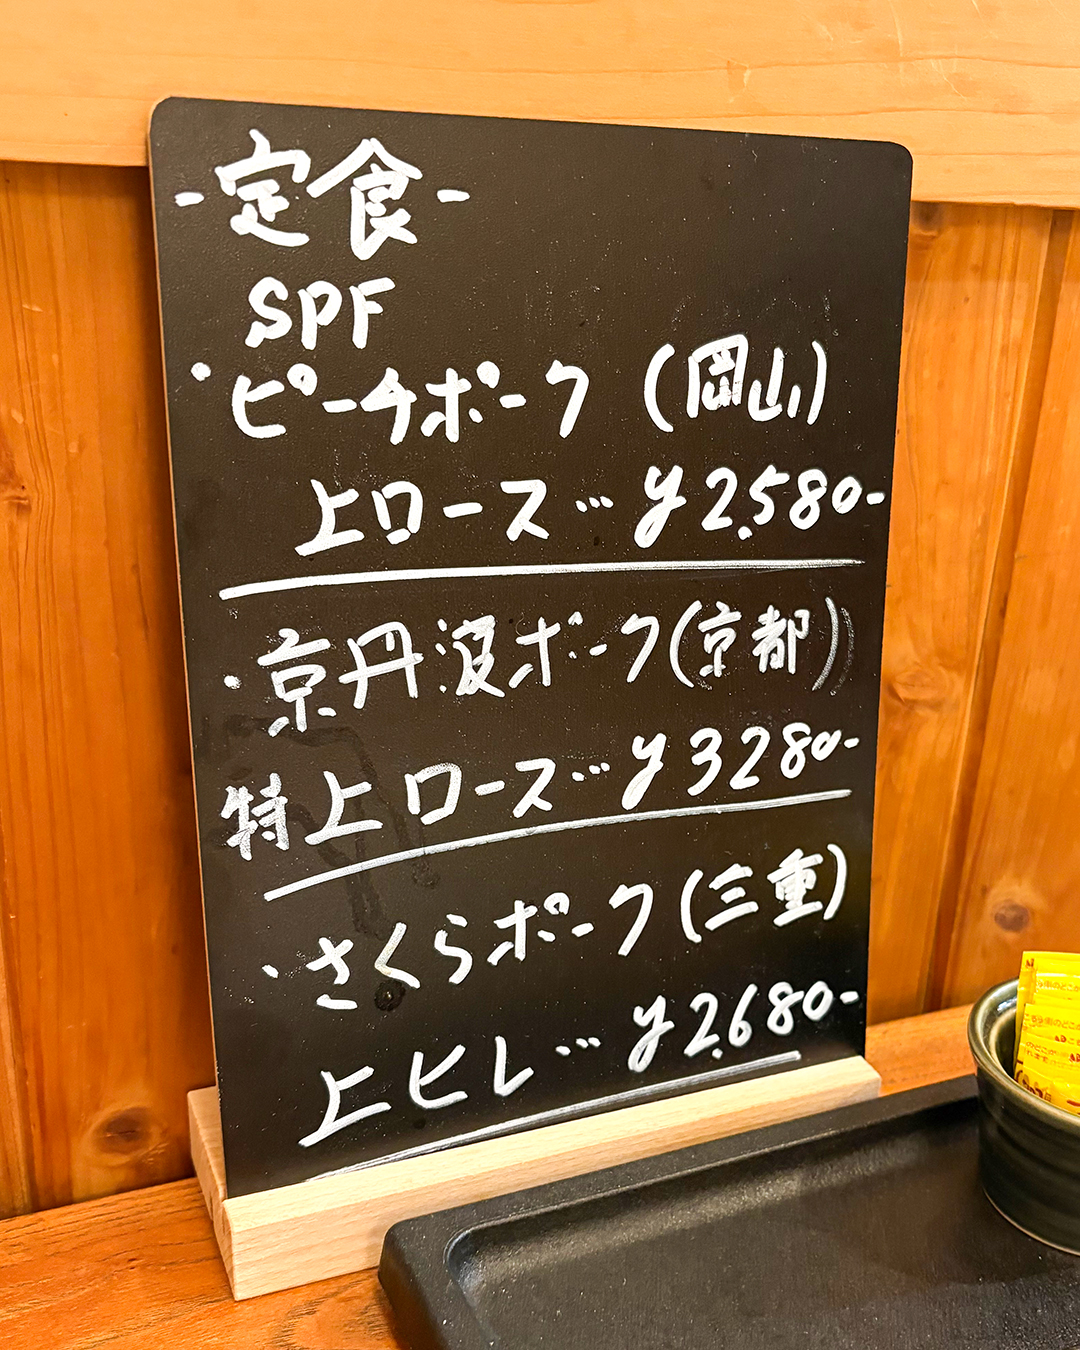 -定食-
SPF
・ピーチポーク (岡山)
上ロース…¥2,580-
・京丹波ポーク(京都)
特上ロース…¥3280-
・さくらポーク(三重)
上ヒレ…¥2,680-